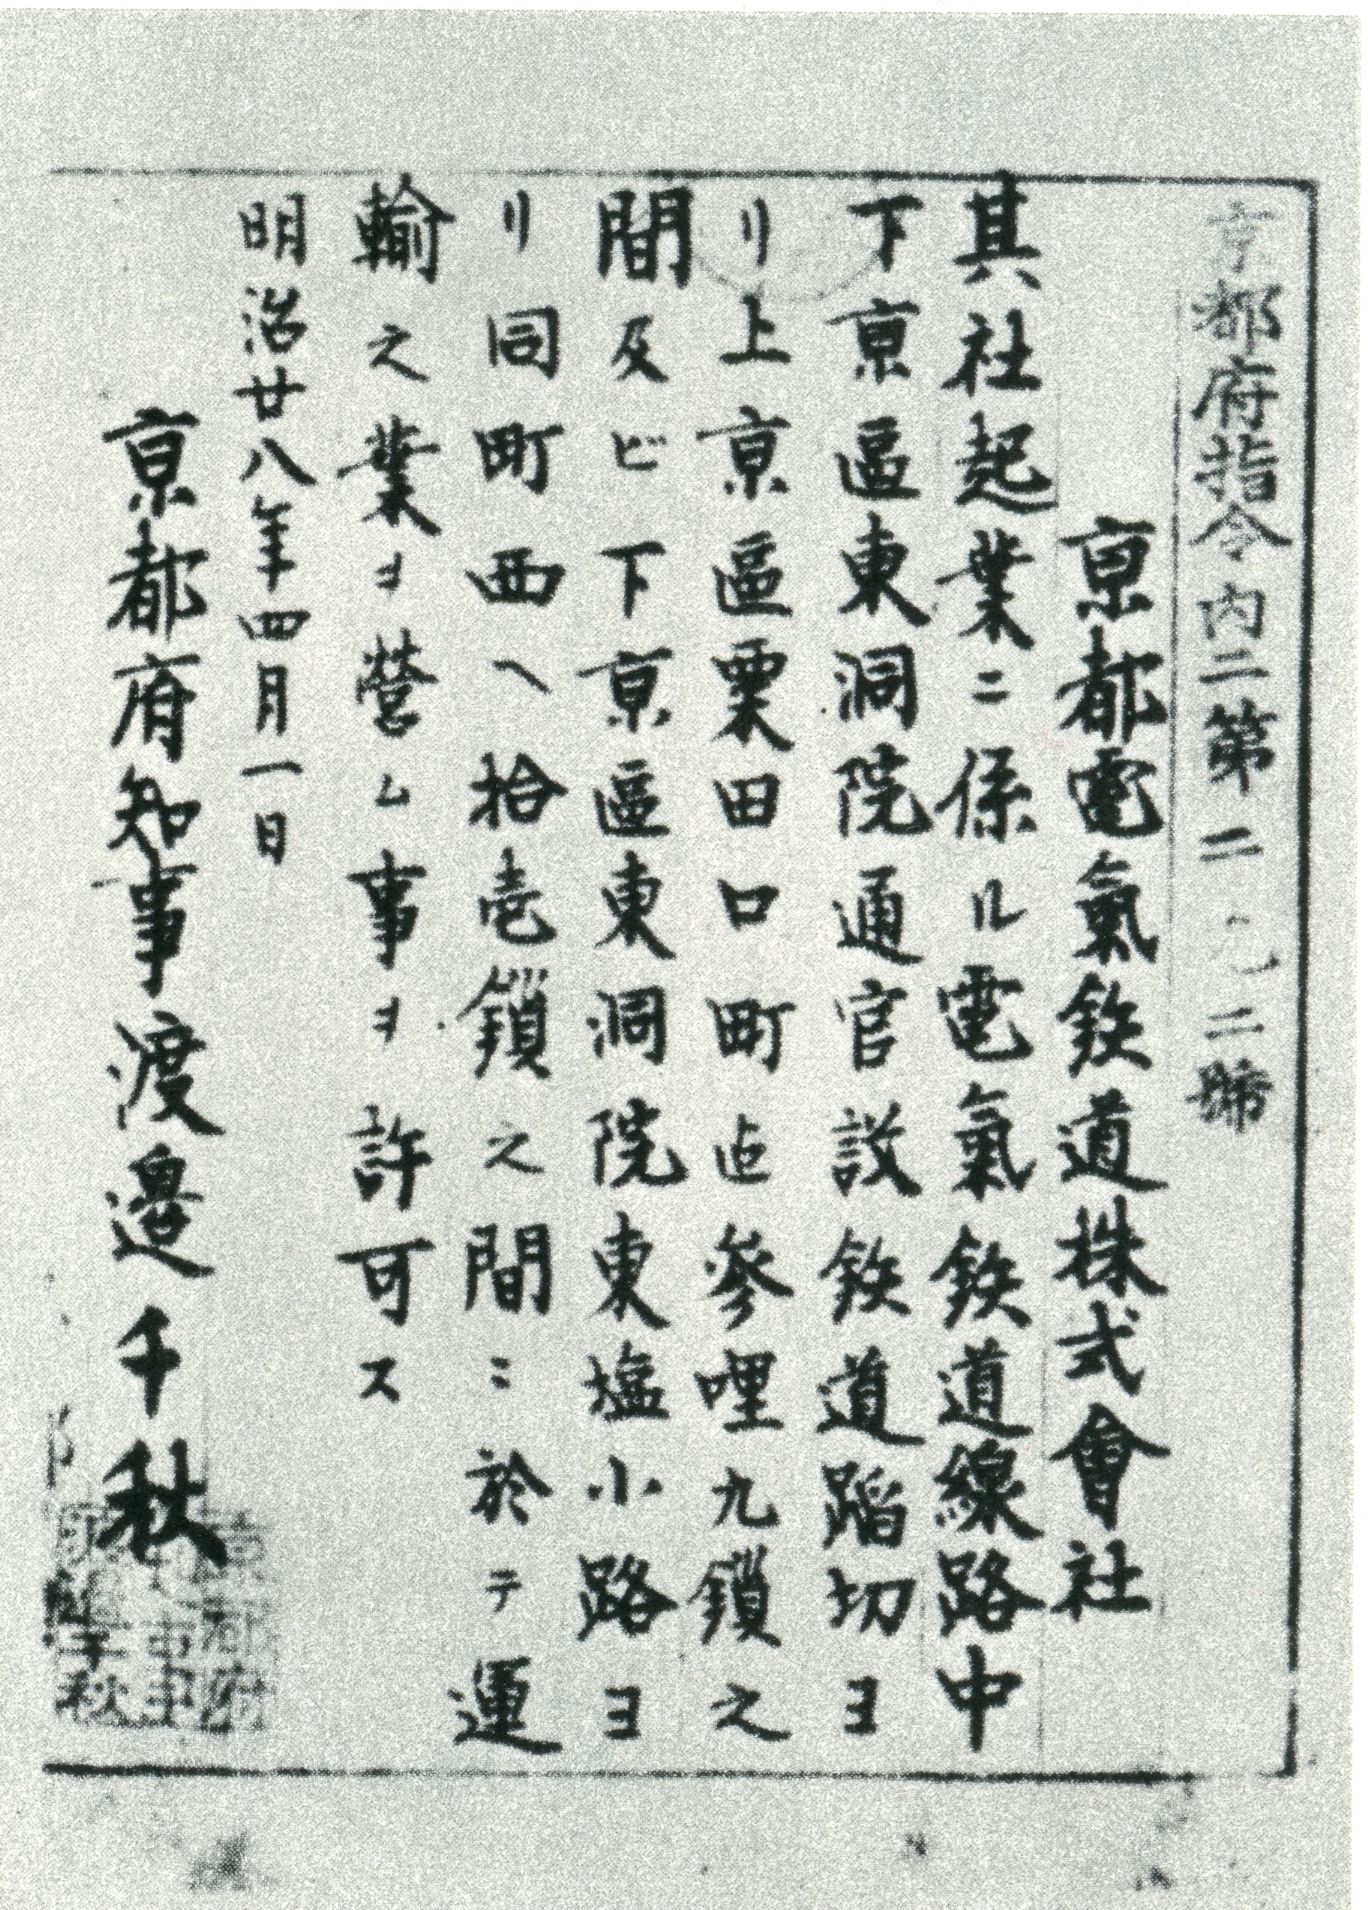 京都府指令内二第二九二號
京都電氣鉄道株式會社
其社起業ニ係ル電氣鉄道線路中
下京區東洞院通官設鉄道蹈切ヨ
リ上京區粟田口町迠參哩九鎖之
間及ビ下京區東洞院東塩小路ヨ
リ同町西ヘ拾壱鎖之間ニ於テ運
輸之業ヲ營ム事ヲ許可ス
明治廿八年四月一日
京都府知事渡邉千秋
京都府
知事